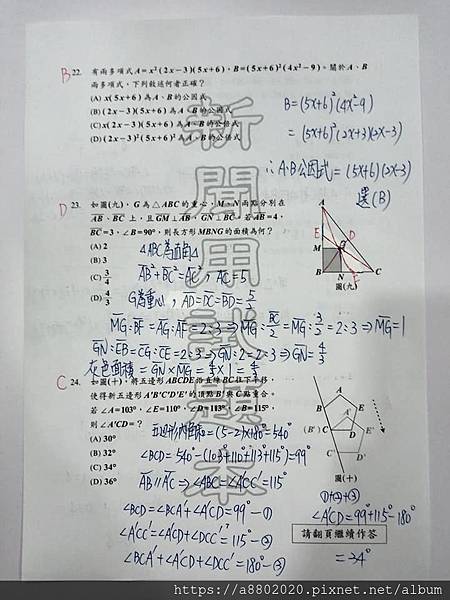 B 22. 有兩多項式A=x²(2x-3)(5x+6)，B=(5x+6)²(4x²-9)。關於A、B
兩多項式，下列敘述何者正確？
(A) x(5x+6)為A、B的公因式
(B) (2x-3)(5x+6)為A、B的公因式
(C) x(2x-3)(5x+6)為A、B的公倍式
(D) (2x-3)²(5x+6)²為A、B的公倍式
B=(5x+6)²(4x²-9)
=(5x+6)²(2x+3)(2x-3)
∴A.B公因式=(5x+6)(2x-3)
選(B)
新聞用試題本
D 23. 如圖(九)，G為△ABC的重心，M、N兩點分別在
AB、BC上，且GM⊥AB、GN⊥BC。若AB=4，
BC=3，∠B=90°，則長方形MBNG的面積為何？
(A) 2
(B) 3
(C) 3/4
(D) 4/3
△ABC為直角△
AB²+BC²=AC²，AC=5
G為重心，AD=DC=BD=5/2
MG:BF=AG:AF=2:3⇒MG:BC/2=MG:3/2=2:3⇒MG=1
GN:EB=CG:CE=2:3⇒GN:2=2:3⇒GN=4/3
灰色面積=GN×MG=4/3×1=4/3
A
E
D
M
G
B
N
F
C
圖(九)
C 24. 如圖(十)，將五邊形ABCDE沿直線BC往下平移，
使得新五邊形A'B'C'D'E'的頂點B'與C點重合。
若∠A=103°，∠E=110°，∠D=113°，∠B=115°，
則∠A'CD=？
(A) 30°
(B) 32°
(C) 34°
(D) 36°
五邊形內角和=(5-2)×180°=540°
∠BCD=540°-(103°+110°+113°+115°)=99°
AB∥A'C⇒∠ABC=∠A'CC'=115°
∠BCD=∠BCA'+∠A'CD=99°-①
∠A'CC'=∠A'CD+∠DCC'=115°-②
∠BCA'+∠A'CD+∠DCC'=180°-③
A
B
E
A'
(B') C
D
E'
C'
D'
圖(十)
①+②-③
∠A'CD=99°+115°-180°
=34°
請翻頁繼續作答
https://a8802020.pixnet.net/album